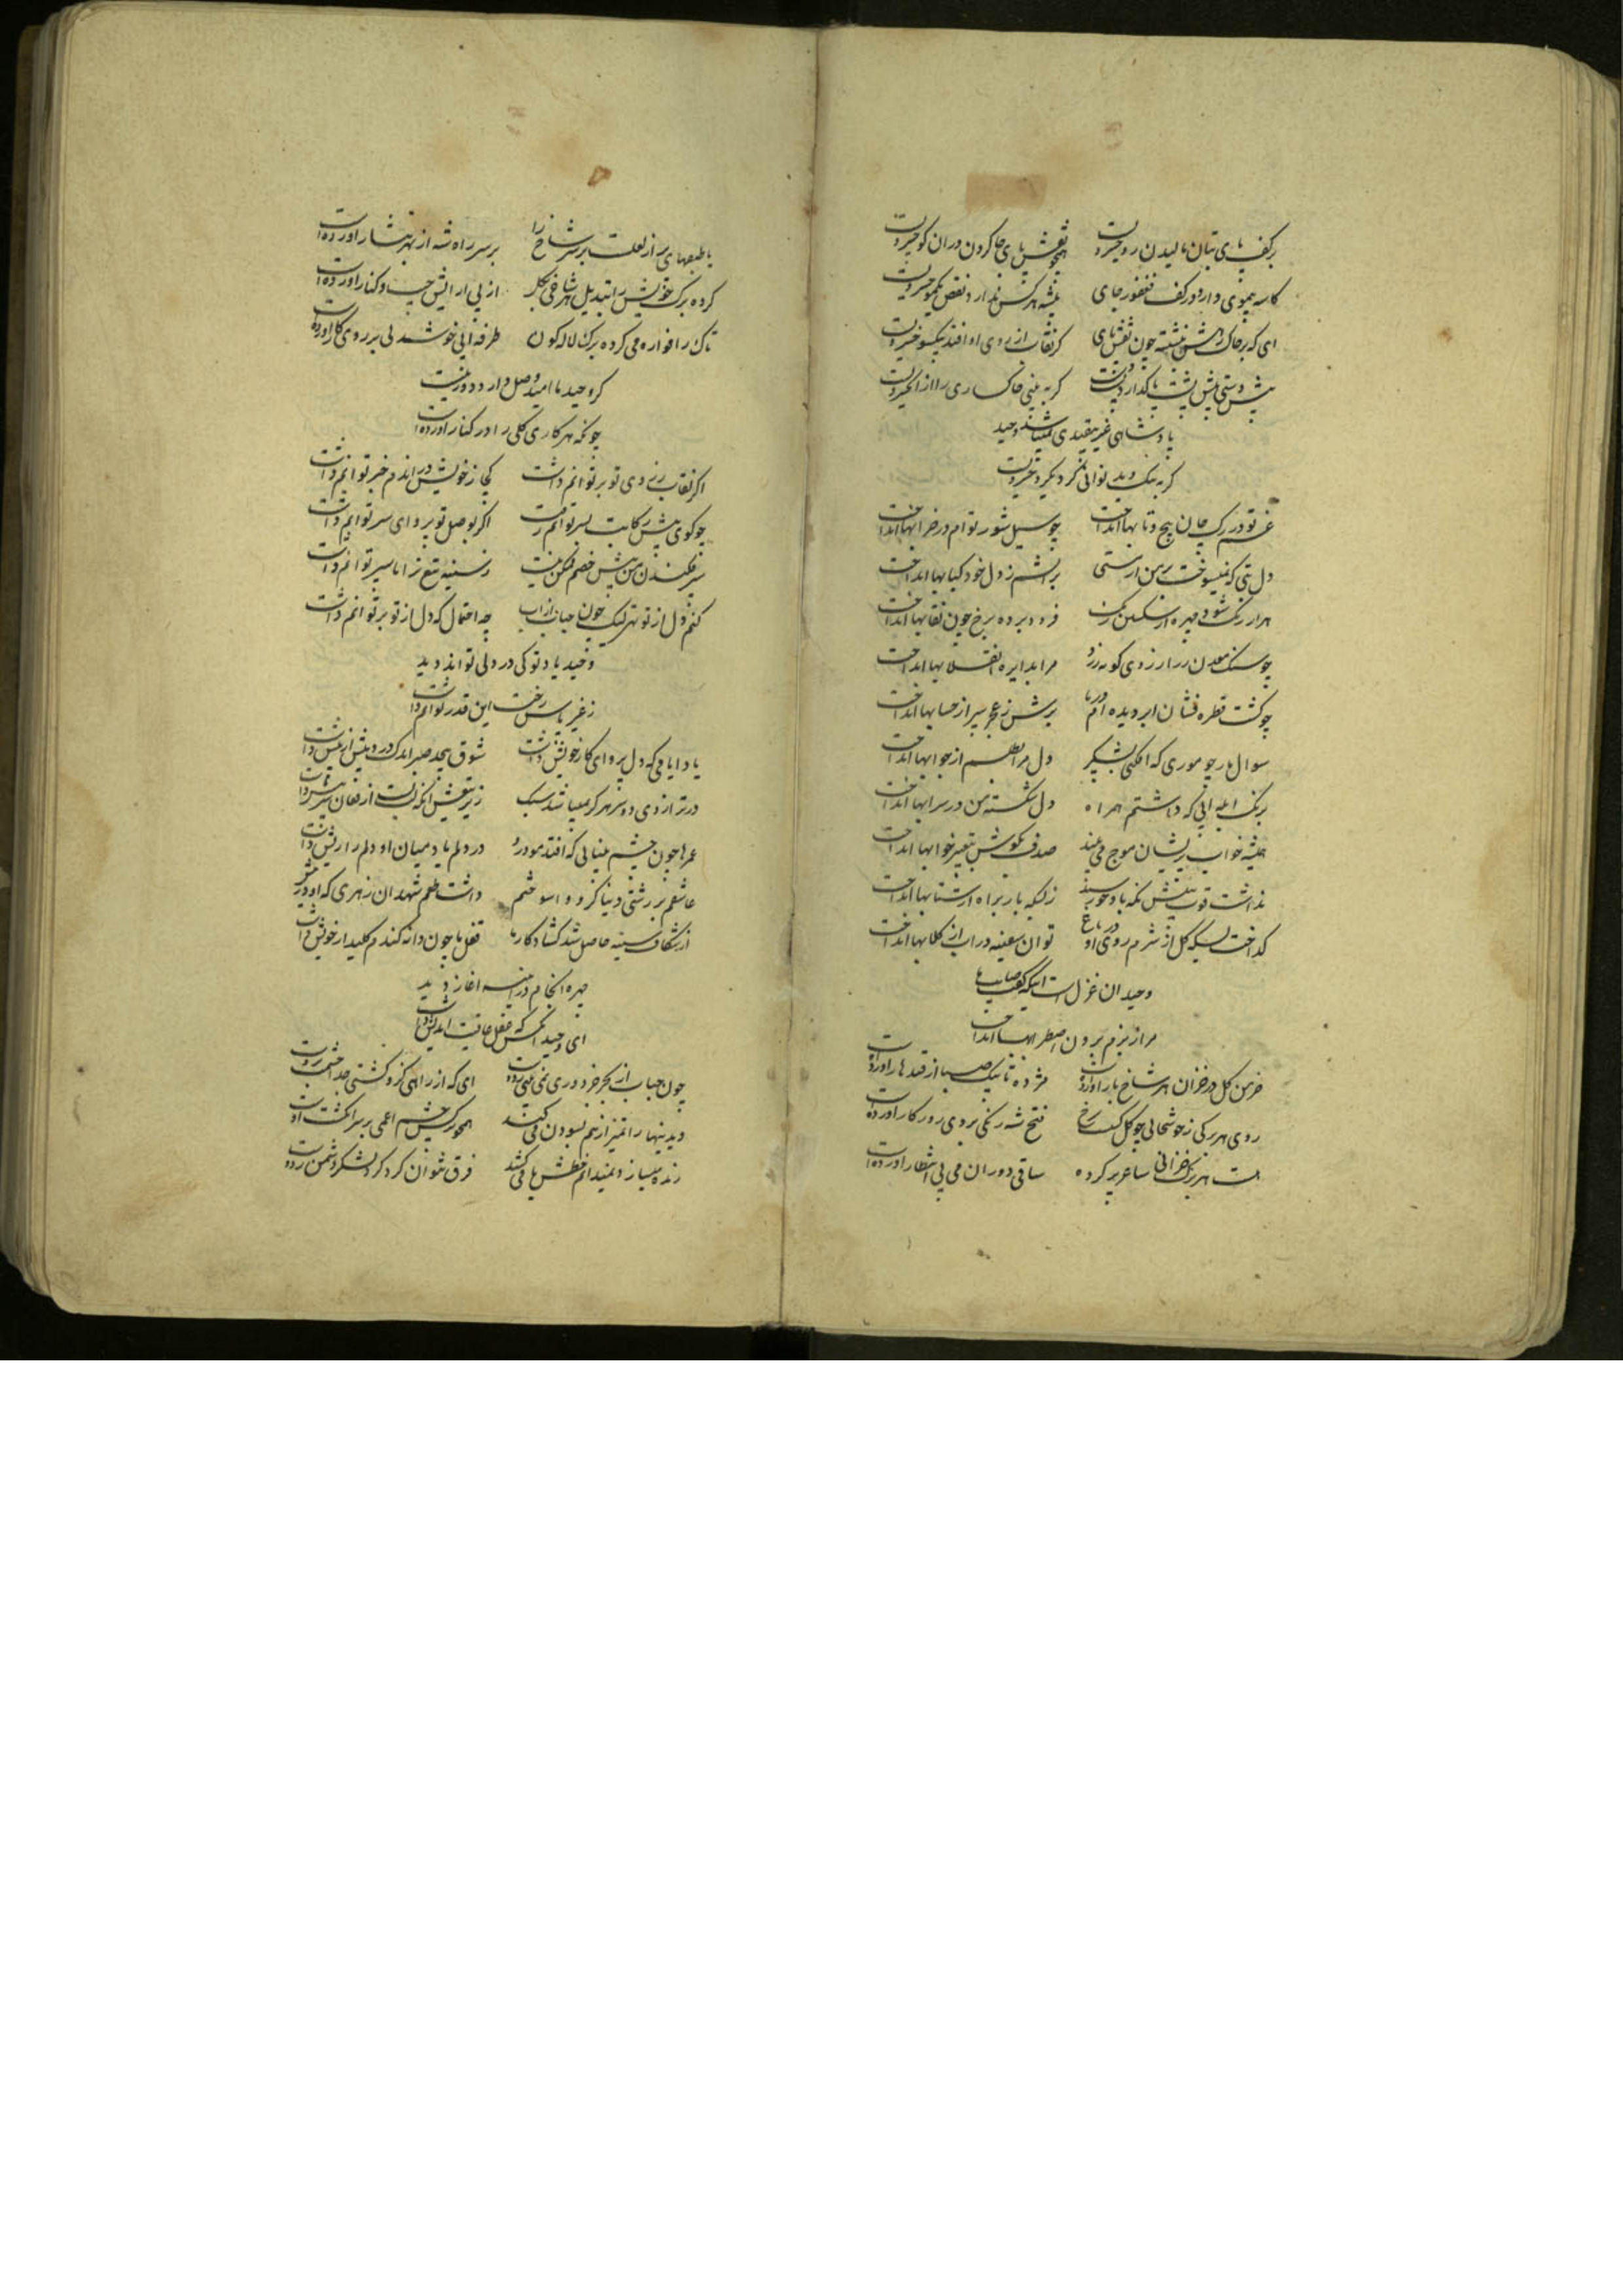 بر کف پای بتان مالیدن رو خیر و همچو نقش پای جا کردن دران کو خیر و
کاسه موی دارد در کف فغفور جای تیشه هر کس ندارد نقص یکمو
ای که بر خاک رهش بنشسته چون نقش پای کر نقاب از روی او افتد یکسو خیر و
پیش دستی پیش پشت پا کر به بینی خاکساری را از
پادشاهی غیر بیقیدی نمیباشد وحید
کر به نیک و بد توانی کرد
غم تو در رک جان پیچ و تابها انداخت چو سیل شور توام در خرابها انداخت
دل بتی که نمیسوخت بر من از مستی بر آتشم ز دل خود کبابها انداخت
هزار رنک شود چهره فرو برده برخ چون نقابها انداخت
چو سنک معدن زر آرزوی مرا بدایره انقلابها انداخت
چو کشت قطره فشان ابر دیده برش ز بحر سپر از حبابها انداخت
سوال مار چو موری که افکنی دل مرا بطلسم از جوابها انداخت
برنک آبله آبی که داشتم همراه دل شکسته من در سرابها انداخت
همیشه خواب پریشان موج می بیند صدف بکوشش تعبیر خوابها انداخت
نداشت قوت بینش نکه ز بسکه بار براه از شتابها انداخت
کداخت بسکه کل از شرم روی او در باغ توان سفینه در آب از کلابها انداخت
وحید ان غزل است اینکه کفت صایب ما
مرا ز بزم برون اضطرابها انداخت
خرمن کل در خزان هر شاخ بار آورده است مژده تا پیک صبا از قندهار آورده است
روی هر برکی ز خوشحالی چو کل رخ فتح شه رنکی بروی روزکار آورده است
هست هر برک خزانی ساغر پر کرده ساقی دوران می بی انتظار آورده است
با طبقهای پر از لعلست بر سر شاخ را بر سر راه شه از بهر نثار آورده است
کرده برک خویش را تبدیل هر شاخی بکل از پی آرایش جیب و کنار آورده است
تاک را فواره می کرده برک لاله کون طرفه آبی خوشدلی بر روی کار آورده است
کر وحید ما امید وصل دارد دور نیست
چونکه هر خاری کلی را در کنار آورده است
اکر نقاب ز روی تو بر توانم داشت کجا ز خویش دران دم خبر توانم داشت
چو کوی پیش رکابت بسر توانم رفت اکر بوصل تو پروای سر توانم داشت
سپر فکندن من پیش خصم ممکن نیست ز سینه تیغ ترا تا سپر توانم داشت
کنم دل از تو تهی لیک چون حباب از آب چه احتمال که دل از تو بر توانم داشت
وحید یاد تو کی در دلی تواند دید
ز غیر پاس رخت این قدر توانم داشت
یاد ایامی که دل پروای کار خویش داشت شوق بیحد صبر اندک درد بیش از بیش داشت
در ترازوی دو سر هرکز نمیباشد سبک زیر تیغش آنکه لب از فغان
عمرها چون چشم بینایی که افتد مو درو در دلم یاد میان او دلم را ریش داشت
عاشقم بر زشتی دنیا نکرد و سوختم داشت طعم شهد ان زهری که او در نیش داشت
از شکاف سینه حاصل شد کشاد کار ما قفل ما چون دانه کندم کلید از خویش داشت
چهره انجام در آیینه آغاز دید
ای وحید آنکس که عقل عاقبت اندیش داشت
چون حباب از بحر خود دوری نمی بینی ای که از راهی کز و کشتی جدا
دیدنیها را تمیز از هم نسودن می کند همچو نرکس چشم اعمی بر سر انکشت اوست
زنده میسازد نمیدانم عطش یا می کشد فرق نتوان کرد کر